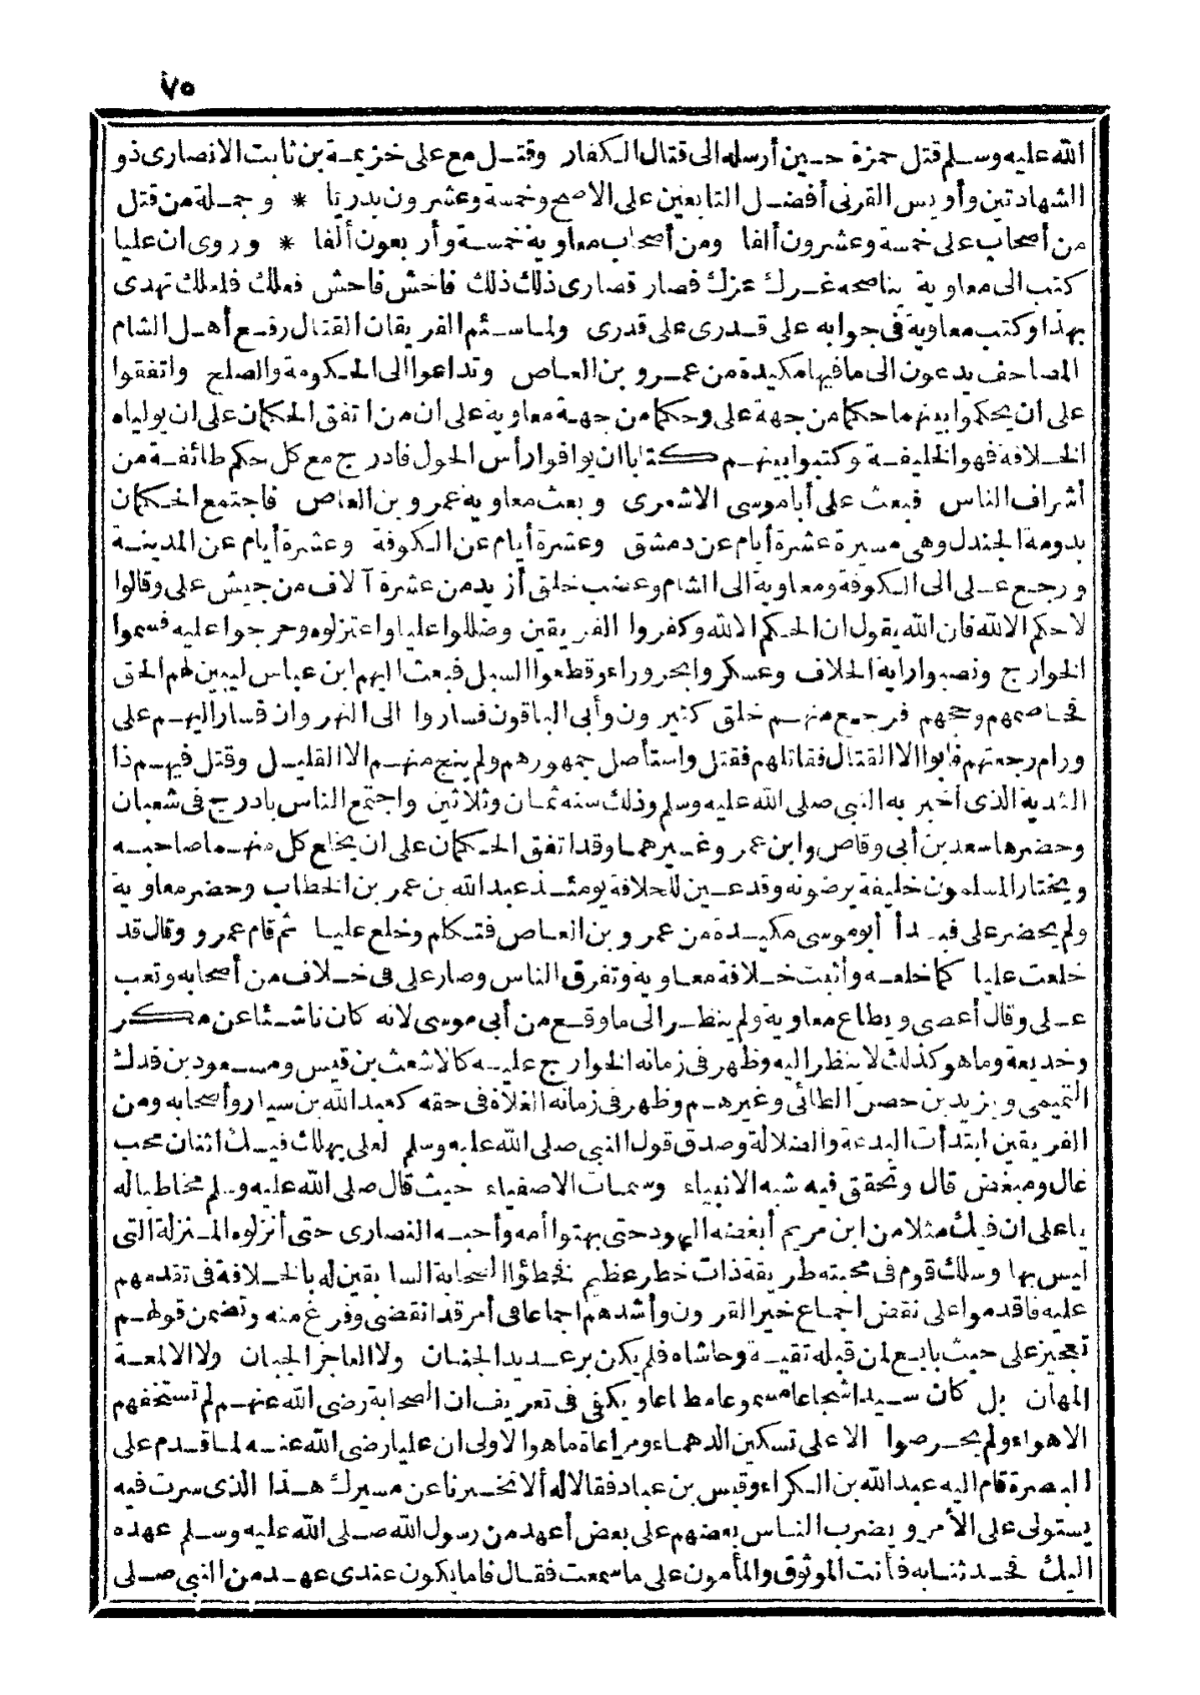 ٧٥
الله عليه وسلم قتل حمزة حين أرسله الى قتال الكفار وقتل مع على خزيمة بن ثابت الانصارى ذو
الشهادتين وأويس القرنى أفضل التابعين على الاصح وخمسة وعشرون بدريا * وجملة من قتل
من أصحاب على خمسة وعشرون ألفا ومن أصحاب معاوية خمسة وأربعون ألفا * وروى ان عليا
كتب الى معاوية يناصحه غرك عزك فصار قصارى ذلك ذلك فاخش فاحش فعلك فلعلك تهدى
بهذا وكتب معاوية فى جوابه على قدرى على قدرى ولما سئم الفريقان القتال رفع أهل الشام
المصاحف يدعون الى ما فيها مكيدة من عمرو بن العاص وتداعوا الى الحكومة والصلح واتفقوا
على ان يحكموا بينهما حكما من جهة على وحكما من جهة معاوية على ان من اتفق الحكمان على ان يولياه
الخلافة فهو الخليفة وكتبوا بينهم كتابا ان يوافوا رأس الحول فادرج مع كل حكم طائفة من
أشراف الناس فبعث على أبا موسى الاشعرى وبعث معاوية عمرو بن العاص فاجتمع الحكمان
بدومة الجندل وهى مسيرة عشرة أيام عن دمشق وعشرة أيام عن الكوفة وعشرة أيام عن المدينة
ورجع على الى الكوفة ومعاوية الى الشام وعتب خلق أزيد من عشرة آلاف من جيش على وقالوا
لا حكم الا لله فان الله يقول ان الحكم الا لله وكفروا الفريقين وضللوا عليا واعتزلوه وخرجوا عليه فسموا
الخوارج ونصبوا راية الخلاف وعسكروا بحروراء وقطعوا السبل فبعث اليهم ابن عباس ليبين لهم الحق
فخاصمهم وحجهم فرجع منهم خلق كثيرون وأبى الباقون فساروا الى النهروان فسار اليهم على
ورام رجعتهم فابوا الا القتال فقاتلهم فقتل واستأصل جمهورهم ولم ينج منهم الا القليل وقتل فيهم ذا
الثدية الذى أخبر به النبى صلى الله عليه وسلم وذلك سنه ثمان وثلاثين واجتمع الناس بادرج فى شعبان
وحضرها سعد بن أبى وقاص وابن عمر وغيرهما وقد اتفق الحكمان على ان يخلع كل منهما صاحبه
ويختار المسلمون خليفة يرضونه وقد عين للخلافة يومئذ عبد الله بن عمر بن الخطاب وحضر معاوية
ولم يحضر على فبدأ أبو موسى مكيدة من عمرو بن العاص فتكلم وخلع عليا ثم قام عمرو وقال قد
خلعت عليا كما خلعه وأثبت خلافة معاوية وتفرق الناس وصار على فى خلاف من أصحابه وتعب
على وقال أعصى ويطاع معاوية ولم ينظر الى ما وقع من أبى موسى لانه كان ناشئا عن مكر
وخديعة وما هو كذلك لا ينظر اليه وظهر فى زمانه الخوارج عليه كالاشعث بن قيس ومسعود بن فدك
التميمى ويزيد بن حصن الطائى وغيرهم وظهر فى زمانه الغلاة فى حقه كعبد الله بن سبا وأصحابه ومن
الفريقين ابتدأت البدعة والضلالة وصدق قول النبى صلى الله عليه وسلم لعلى يهلك فيك اثنان محب
غال ومبغض قال وتحقق فيه شبه الانبياء وسمات الاصفياء حيث قال صلى الله عليه وسلم مخاطبا له
يا على ان فيك مثلا من ابن مريم أبغضه اليهود حتى بهتوا أمه وأحبه النصارى حتى أنزلوه المنزلة التى
ليس بها وسلك قوم فى محبته طريقة ذات خطر عظيم فخطؤا الصحابة السابقين له بالخلافة فى تقدمهم
عليه فاقدموا على نقض اجماع خير القرون وأشدهم اجماعا فى أمر قد انقضى وفرغ منه وتضمن قولهم
تعجيز على حيث بايع لمن قبله تقية وحاشاه فلم يكن برعديد الجنان ولا العاجز الجبان ولا الامعة
المهان بل كان سيدا شجاعا مسموعا مطاعا ويكفى فى تعريف ان الصحابة رضى الله عنهم لم تستخفهم
الاهواء ولم يحرصوا الا على تسكين الدهماء ومراعاة ما هو الاولى ان عليا رضى الله عنه لما قدم على
البصرة قام اليه عبد الله بن الكواء وقيس بن عباد فقالا له ألا تخبرنا عن مسيرك هذا الذى سرت فيه
يستولى على الأمر ويضرب الناس بعضهم على بعض أعهد من رسول الله صلى الله عليه وسلم عهده
اليك فحدثنا به فأنت الموثوق والمأمون على ما سمعت فقال فاما يكون عندى عهد من النبى صلى